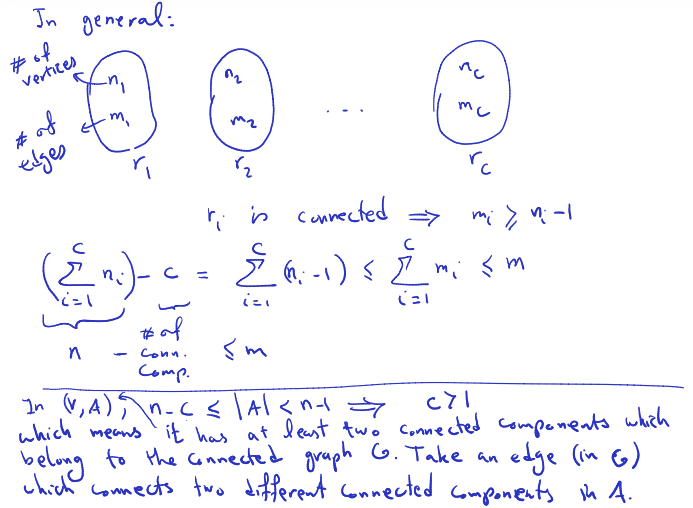 In general:
# of vertices
n₁ n₂ ... n_c
# of edges
m₁ m₂ m_c
r₁ r₂ r_c
r_i is connected ⇒ m_i ≥ n_i - 1
(∑_{i=1}^{c} n_i) - c = ∑_{i=1}^{c} (n_i - 1) ≤ ∑_{i=1}^{c} m_i ≤ m
n - # of conn. comp. ≤ m
In (V, A), n - c ≤ |A| < n-1 ⇒ c > 1
which means it has at least two connected components which
belong to the connected graph G. Take an edge (in G)
which connects two different connected components in A.